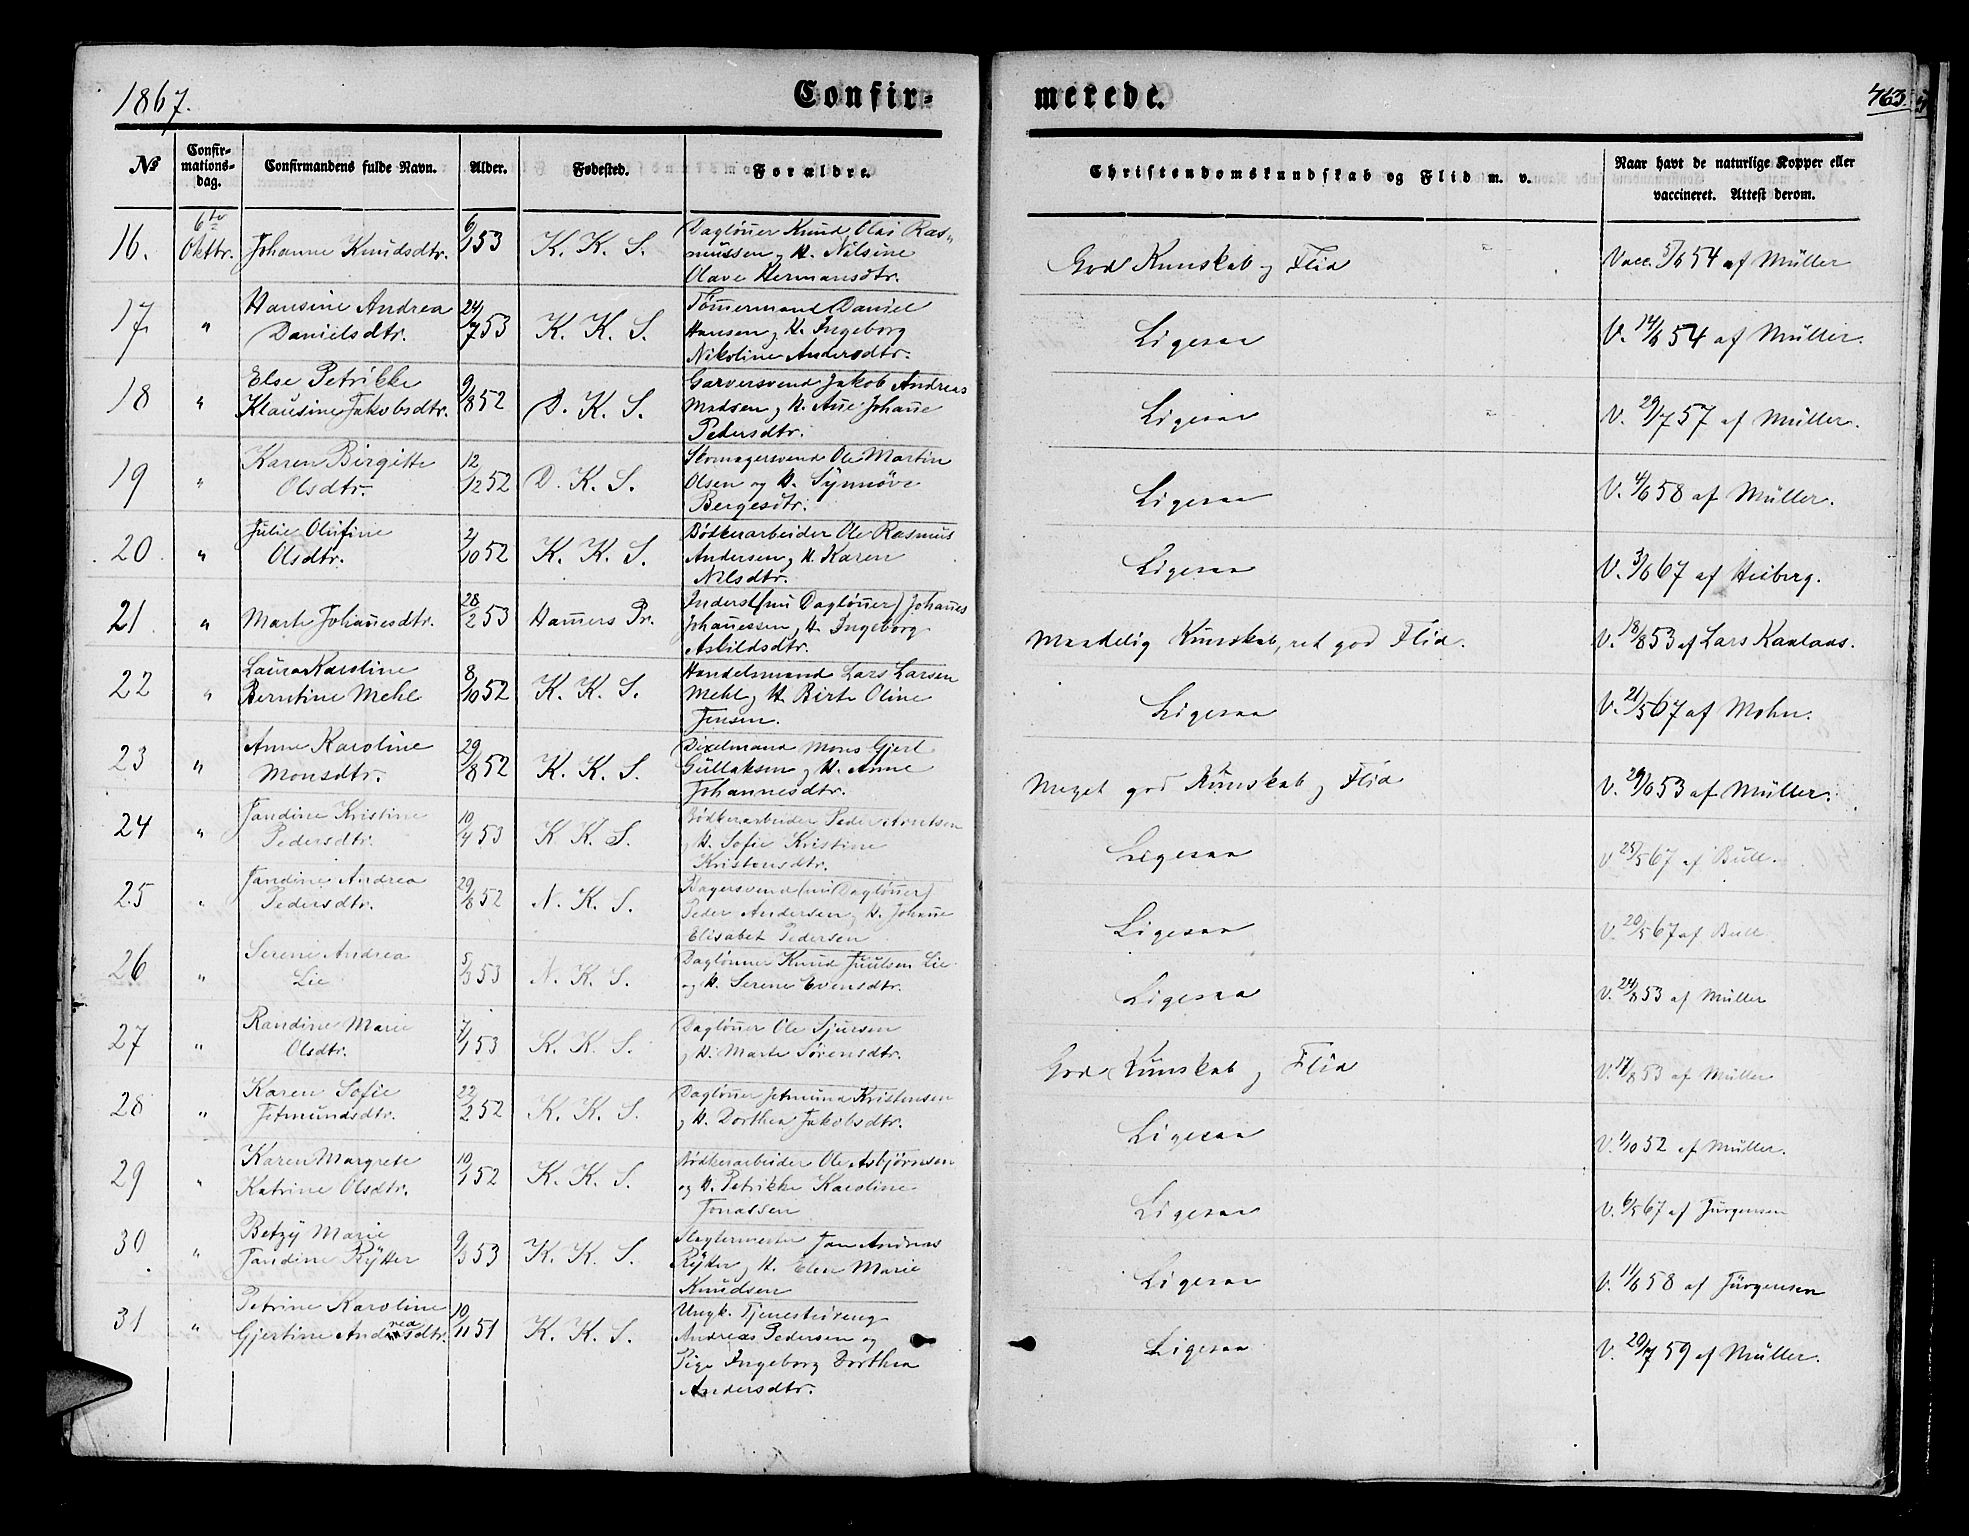 1867.
Confir-
merede.
463.
No
Confirmations-dag.
Confirmandens fulde Navn.
Alder.
Fødested.
Forældre.
Christendomskundskab og Flid m. v.
Naar havt de naturlige Kopper eller vaccineret. Attest derom.
16. 6te Oktbr. Johanne Knudsdtr. 6/1 53 K. K. S. Daglöner Knud Olai Ras-
mussen og H. Nilsine
Olave Hermansdtr. God Kunskab og Flid Vacc. 5/6 54 af Müller
17. " Hansine Andrea
Danielsdtr. 24/7 53 K. K. S. Tömermand Daniel
Hansen og H. Ingeborg
Nikoline Andersdtr. Ligesaa V. 14/6 54 af Müller.
18 " Else Petrikke
Klausine Jakobsdtr. 9/8 52 D. K. S. Garversvend Jakob Andreas
Madsen og H. Ane Johane
Pedersdtr. Ligesaa V. 29/7 57 af Müller.
19 " Karen Birgitte
Olsdtr. 12/12 52 D. K. S. Skomagersvend Ole Martin
Olsen og H. Synnöve
Bergesdtr. Ligesaa V. 4/6 58 af Müller.
20 " Julie Olufine
Olsdtr. 2/10 52 K. K. S. Bödkerarbeider Ole Rasmus
Andersen og H. Karen
Nilsdtr. Ligesaa V. 3/6 67 af Heiberg.
21. " Marte Johanesdtr. 28/2 53 Hamers Pr. Inderst (nu Daglöner) Johanes
Johanessen og H. Ingeborg
Askildsdtr. Maadelig Kunskab, ret god Flid. V. 18/8 53 af Lars Kaalaas.
22 " Laura Karoline
Berntine Mehl 8/10 52 K. K. S. Handelsmand Lars Larsen
Mehl og H. Birte Oline
Jensen. Ligesaa V. 21/5 67 af Mohn.
23 " Anne Karoline
Monsdtr. 29/8 52 K. K. S. Dixelmand Mons Gjert
Gullaksen og H. Anne
Johannesdtr. Meget god Kunskab og Flid V. 29/6 53 af Müller.
24 " Jandine Kristine
Pedersdtr. 10/4 53 K K. S. Bödkerarbeider Peder Arntsen
og H. Sofie Kristine
Kristensdtr. Ligesaa V 25/5 67 af Bull.
25 " Jandine Andrea
Pedersdtr. 29/8 52 N. K. S. Bagersvend (nu Daglöner)
Peder Andersen og H. Johane
Elisabet Pedersen Ligesaa V. 20/5 67 af Bull
26 " Serene Andrea
Lie 5/3 53 N. K. S. Daglönner Knud Juulsen Lie
og H. Serene Evensdtr. Ligesaa V. 24/8 53 af Müller
27 " Randine Marie
Olsdtr. 7/1 53 K. K. S. Daglöner Ole Sjursen
og H. Marte Sörensdtr. God Kunskab og Flid V. 17/8 53 af Müller
28 " Karen Sofie
Jetmundsdtr. 22/2 52 K. K. S. Daglöner Jetmund Kristensen
og H. Dorthea Jakobsdtr. Ligesaa V. 1/10 52 af Müller.
29 " Karen Margrete
Katrine Olsdtr. 10/1 52 K. K. S. Bödkerarbeider Ole Asbjörnsen
og H. Petrikke Karoline
Jonassen Ligesaa V. 6/5 67 af Jürgensen
30 " Betzy Marie
Jandine Rÿtter 9/3 53 K. K. S. Slagtermester Jan Andreas
Rÿtter og H. Elen Marie
Knudsen Ligesaa V. 11/6 58 af Jürgensen
31 " Petrine Karoline
Gjertine Andreadtr. 10/11 51 K. K. S. Ungk. Tjenestedreng
Andreas Pedersen og
Pige Ingeborg Dorthea
Andersdtr. Ligesaa V. 20/7 59 af Müller.